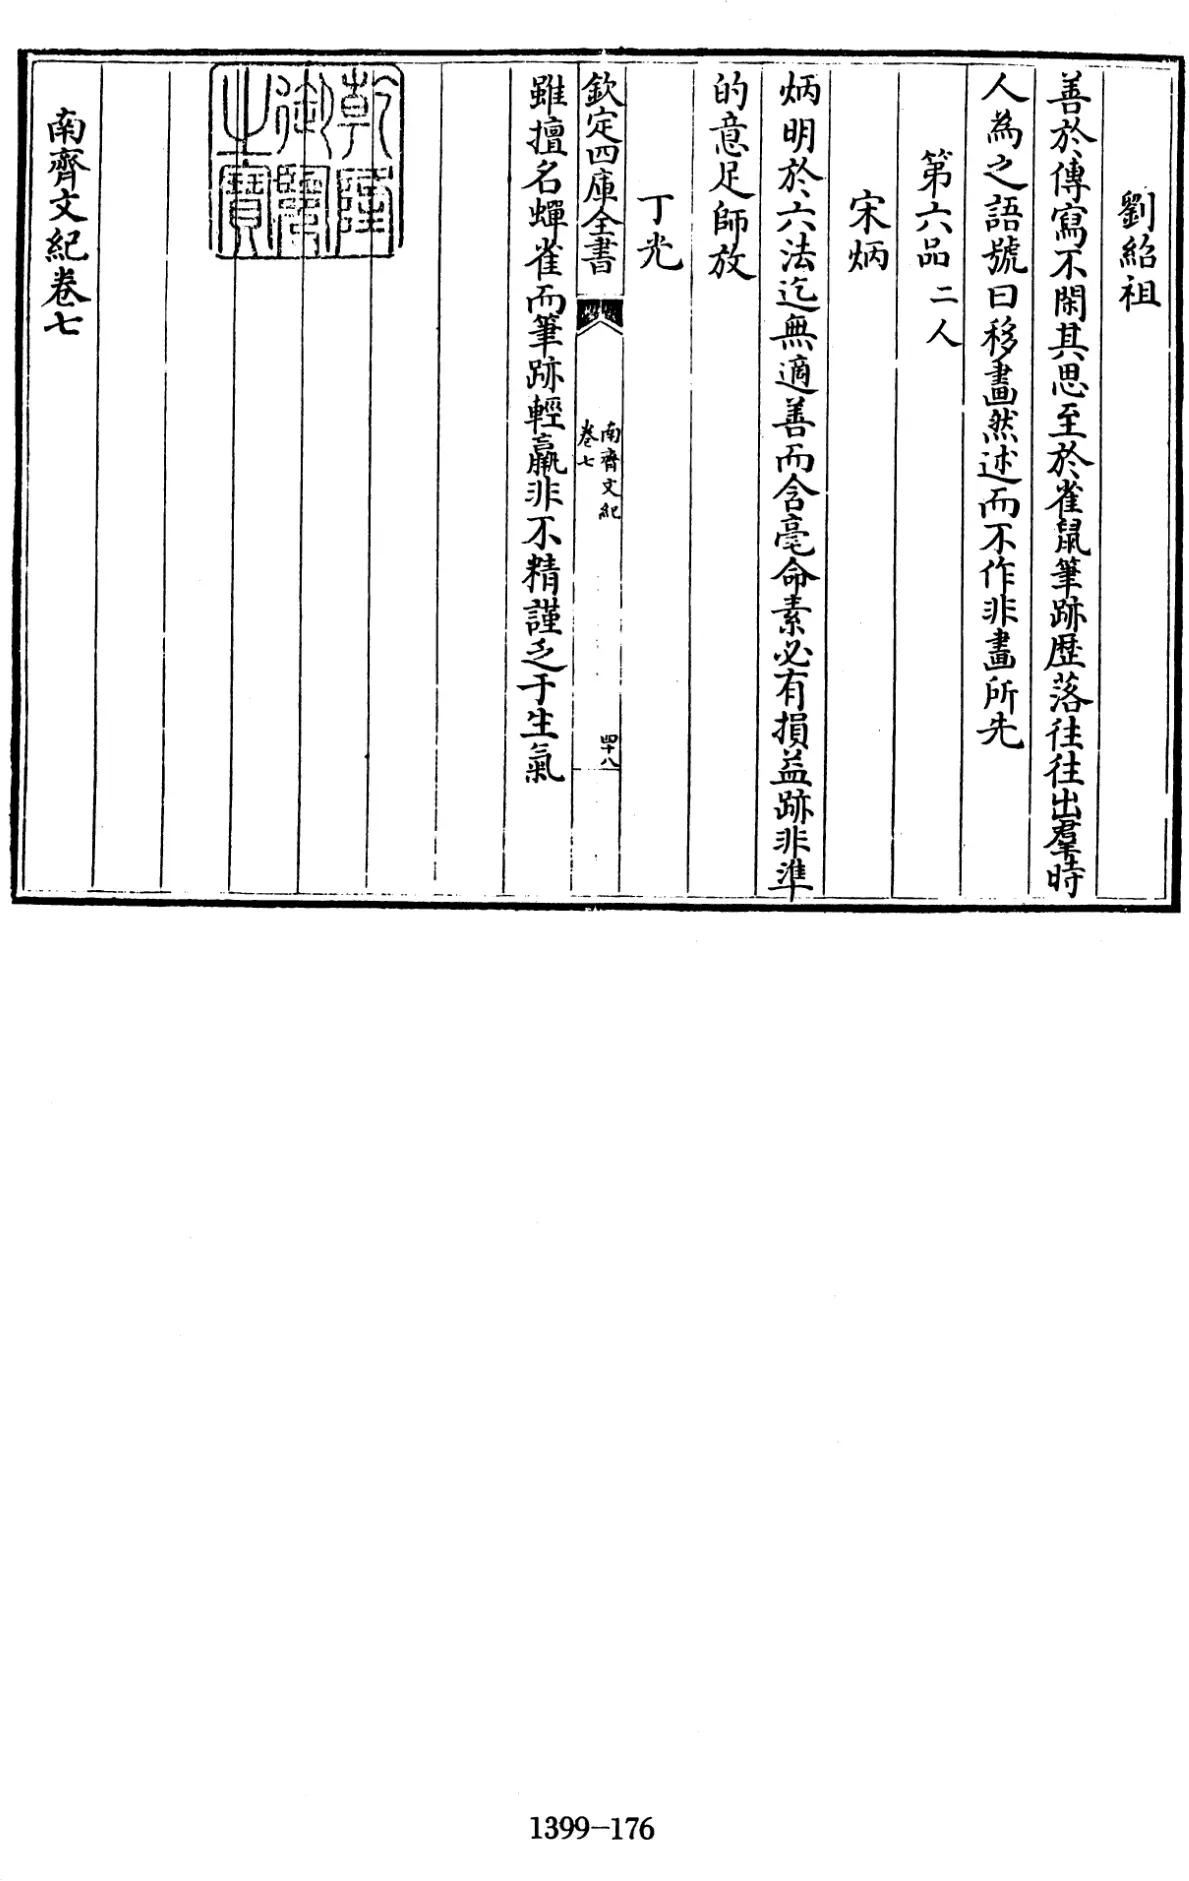 劉紹祖
善於傳寫不閑其思至於雀鼠筆跡歴落往往出羣時
人為之語號曰移畫然述而不作非畫所先
第六品二人
宋炳
炳明於六法迄無適善而含毫命素必有損益跡非準
的意足師放
丁光
欽定四庫全書
南齊文紀
卷七
四十八
雖擅名蟬雀而筆跡輕羸非不精謹乏于生氣
乾隆
御覽
之寶
南齊文紀卷七
1399-176